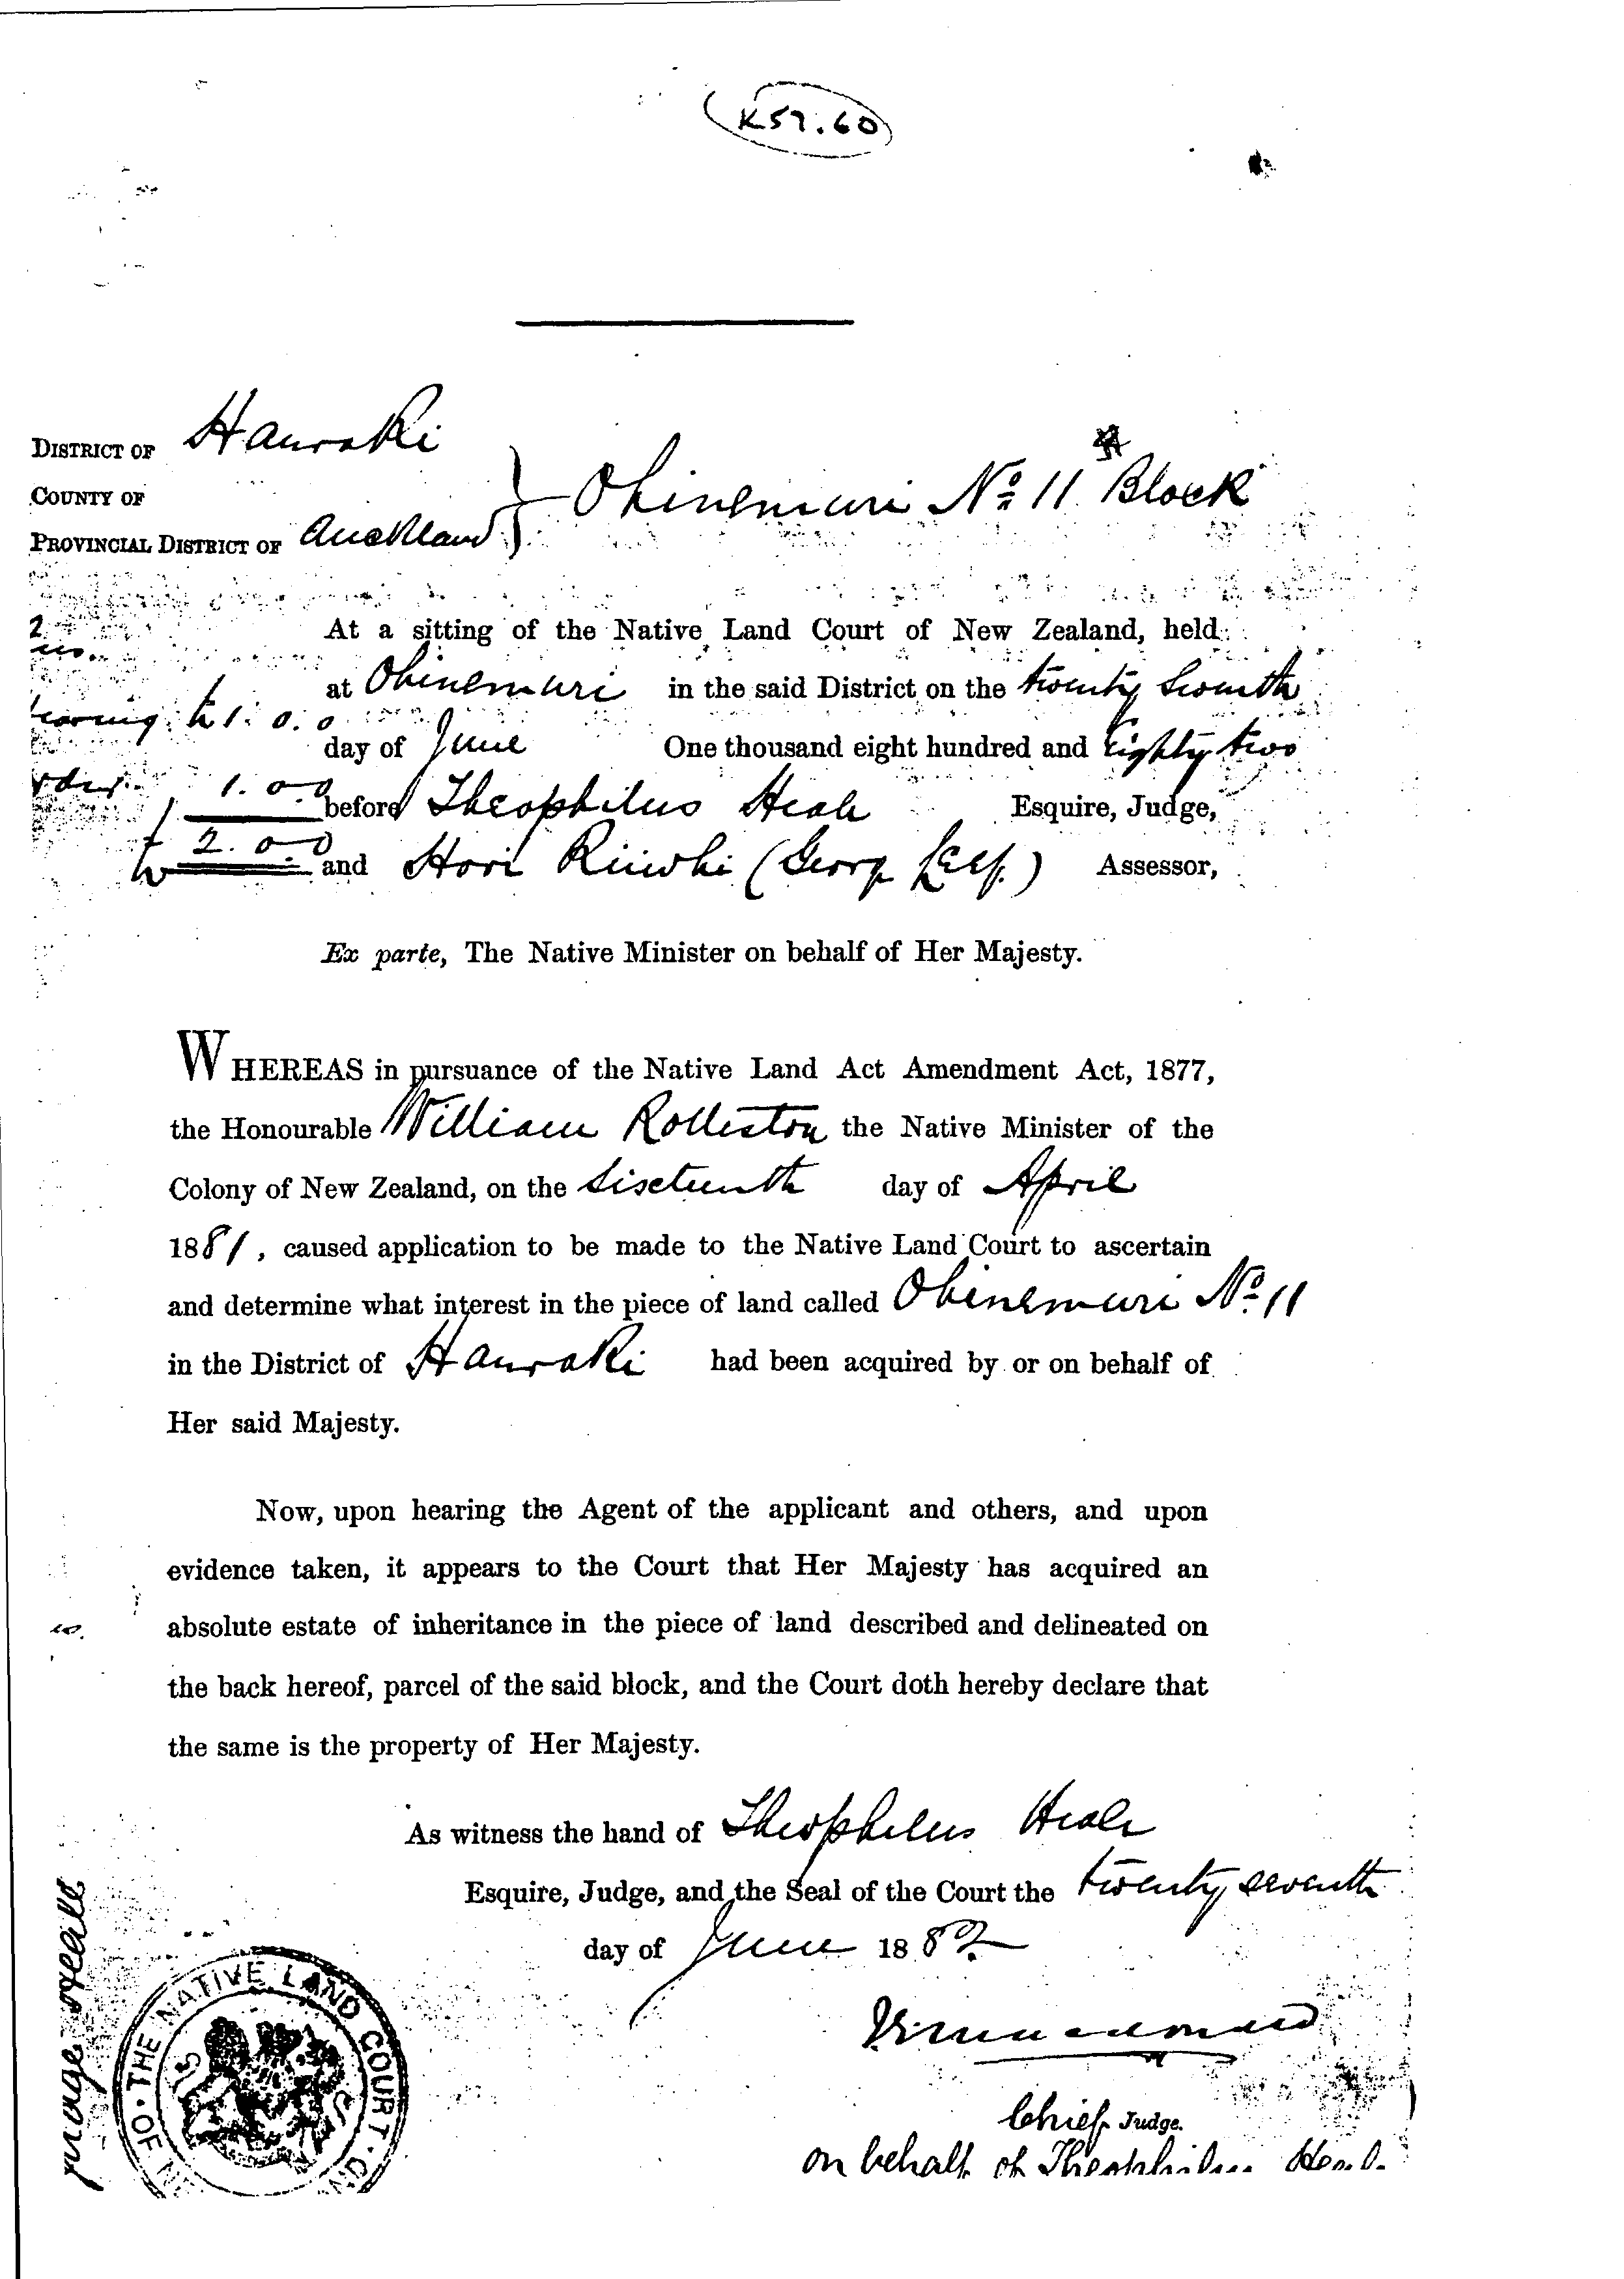 K57.60
DISTRICT OF Hauraki
COUNTY OF
PROVINCIAL DISTRICT OF Auckland
Ohinemuri No 11 Block
At a sitting of the Native Land Court of New Zealand, held
at Ohinemuri in the said District on the twenty seventh
hearing £1. 0. 0
day of June One thousand eight hundred and Eighty two
1. 0. 0
before Theophilus Heale Esquire, Judge,
£ 2. 0. 0
and Hori Riiwhi (George) Assessor,
Ex parte, The Native Minister on behalf of Her Majesty.
WHEREAS in pursuance of the Native Land Act Amendment Act, 1877,
the Honourable William Rolleston the Native Minister of the
Colony of New Zealand, on the Sixteenth day of April
1881, caused application to be made to the Native Land Court to ascertain
and determine what interest in the piece of land called Ohinemuri No 11
in the District of Hauraki had been acquired by or on behalf of
Her said Majesty.
Now, upon hearing the Agent of the applicant and others, and upon
evidence taken, it appears to the Court that Her Majesty has acquired an
absolute estate of inheritance in the piece of land described and delineated on
the back hereof, parcel of the said block, and the Court doth hereby declare that
the same is the property of Her Majesty.
As witness the hand of Theophilus Heale
Esquire, Judge, and the Seal of the Court the twenty seventh
day of June 1882
Chief Judge.
on behalf of Theophilus Heale
Judge Heale
OF · THE NATIVE LAND COURT ·